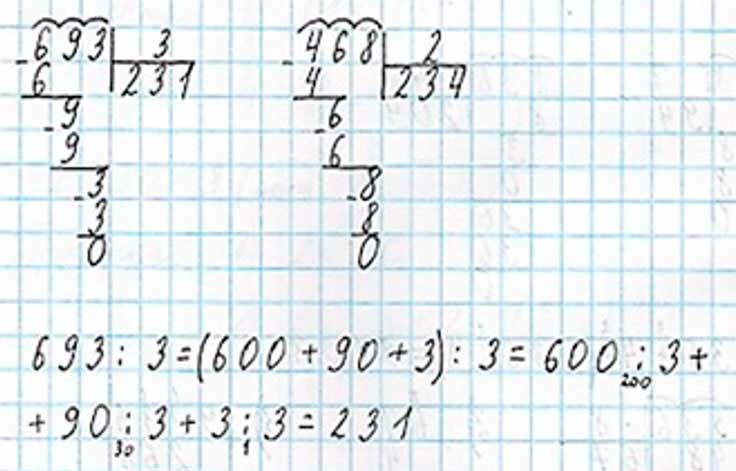 693 | 3
-6 | 231
9
-9
3
-3
0
468 | 2
-4 | 234
6
-6
8
-8
0
693 : 3 = (600 + 90 + 3) : 3 = 600 : 3 +
200
+ 90 : 3 + 3 : 3 = 231
30 1